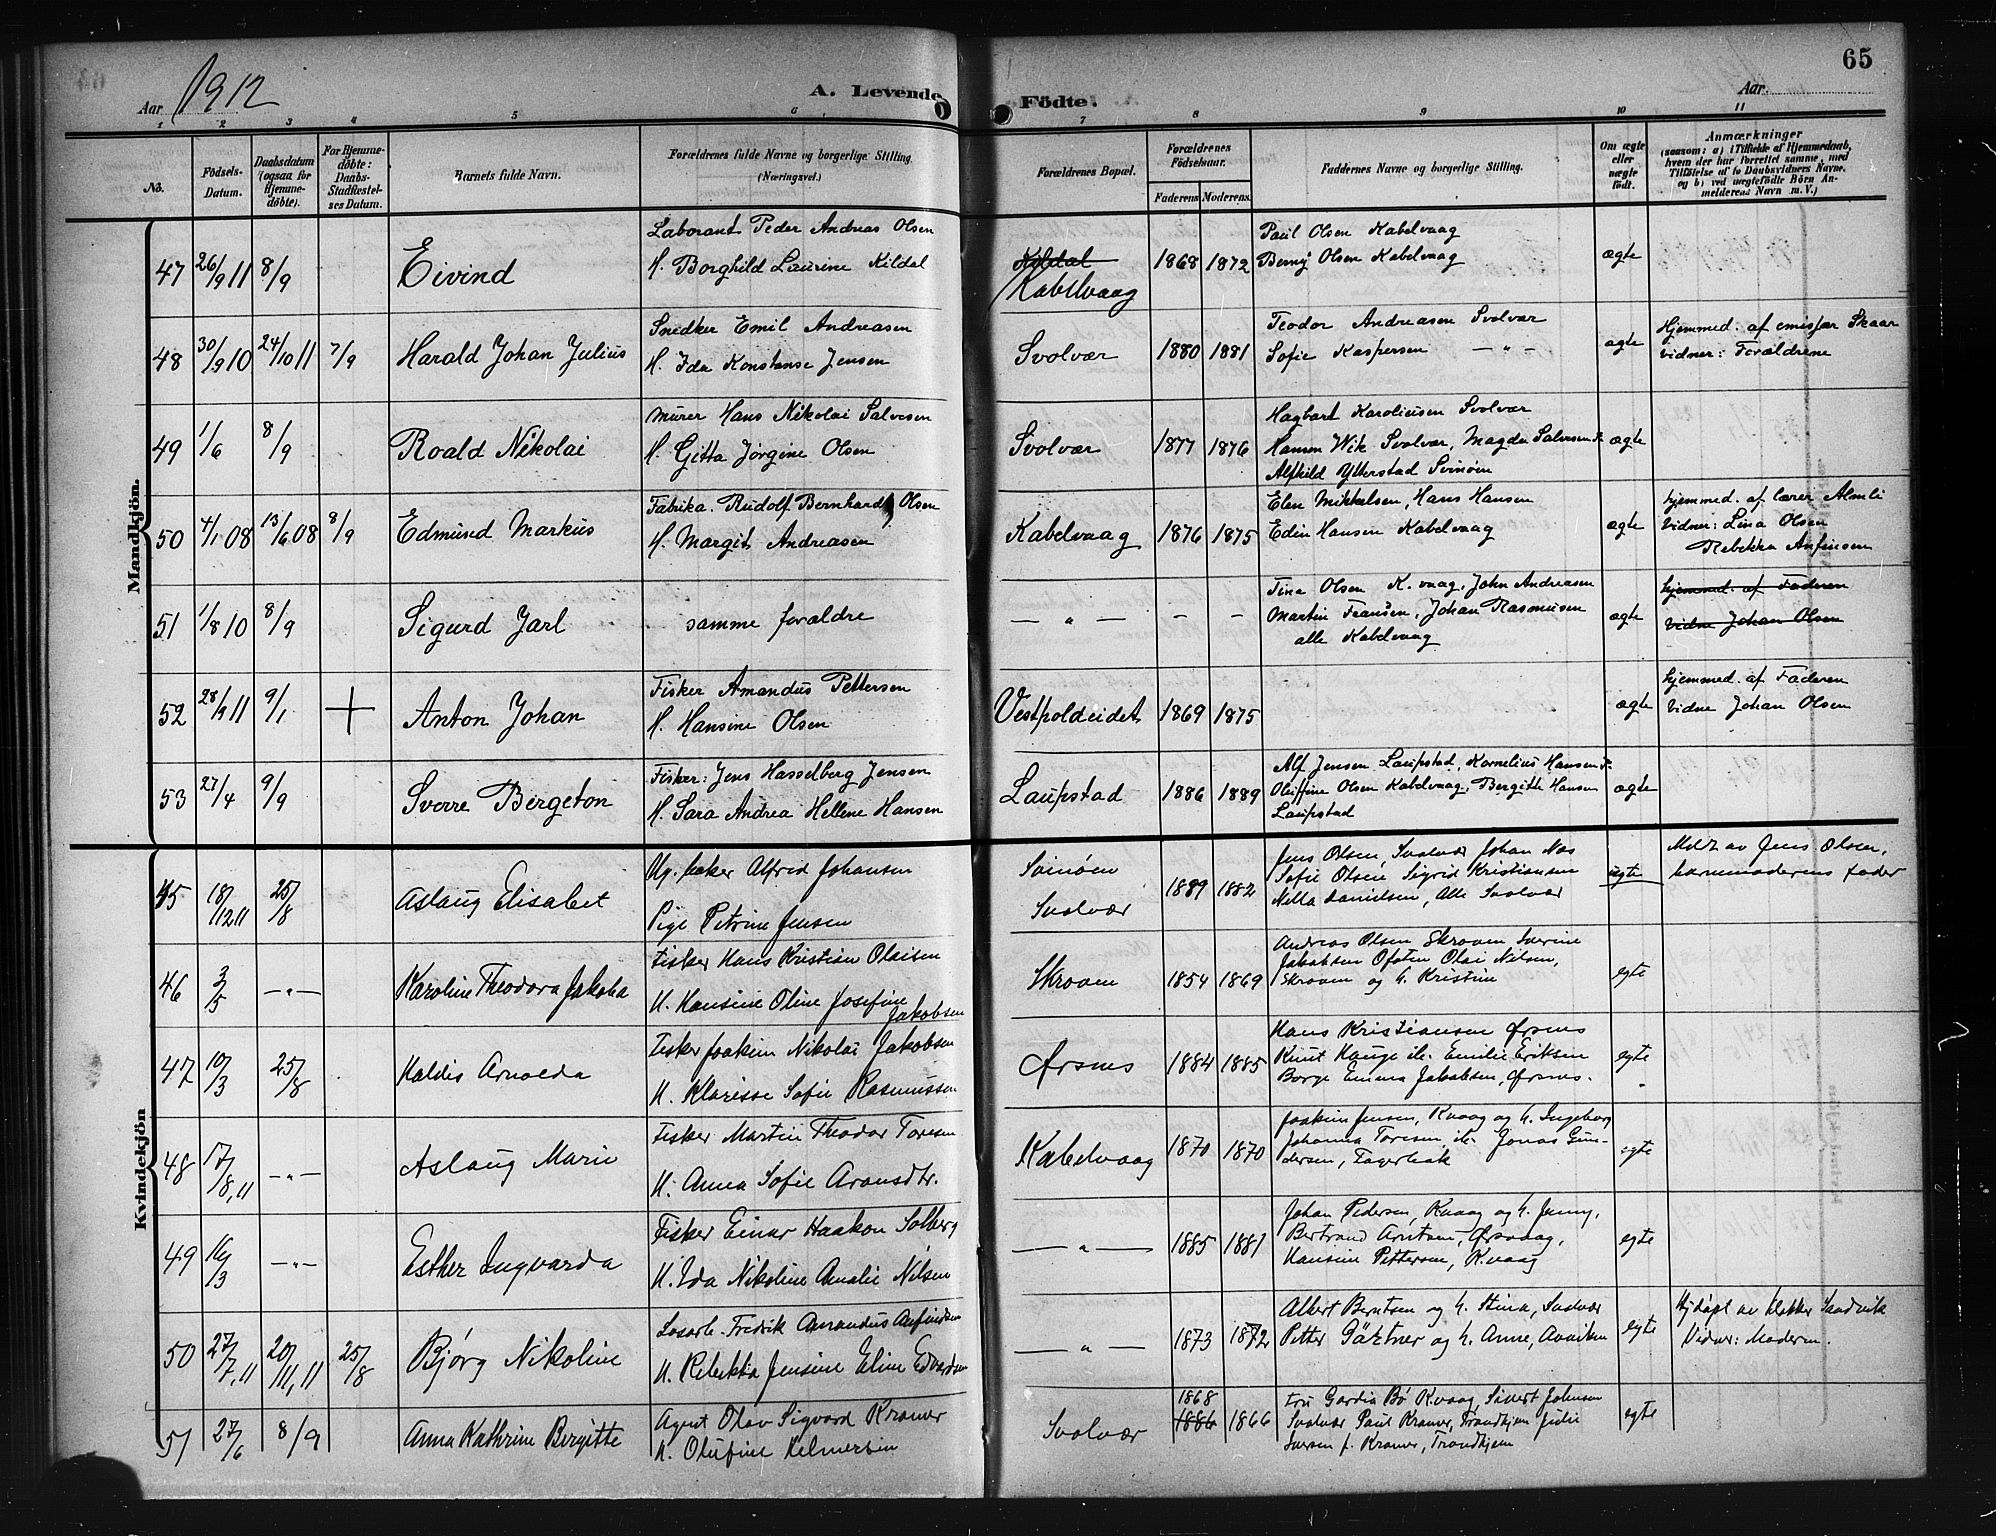 65
Aar 1912
A. Levende Födte.
Aar.
1 2 3 4 5 6 7 8 9 10 11
No. Födsels-Datum. Daabsdatum (ogsaa for Hjemmedöbte). For Hjemmedöbte: Daabs-Stadfæstelses Datum. Barnets fulde Navn. Forældrenes fulde Navne og borgerlige Stilling. (Næringsvei.) Forældrenes Bopæl. Forældrenes Födselsaar. Faderens Moderens. Faddernes Navne og borgerlige Stilling. Om ægte eller uægte födt. Anmærkninger (saasom: a) i Tilfælde af Hjemmedaab, hvem der har forrettet samme, med Tilföielse af to Daabsvidners Navne, og b) ved uægtefödte Börn Anmelderens Navn m. V.)
Mandkjön.
47 26/9 11 8/9 Eivind
Laborant Peder Andreas Olsen
H. Borghild Laurine Kildal
Kildal
Kabelvaag 1868 1872
Paul Olsen Kabelvaag
Berny Olsen Kabelvaag
ægte
48 30/9 10 24/10 11 7/9 Harald Johan Julius
Snedker Emil Andreasen
H. Ida Konstanse Jensen
Svolvær 1880 1881
Teodor Andreasen Svolvær
Sofie Kaspersen — " —
ægte
Hjemmed. af emisær Skaar
vidner: Forældrene
49 1/6 8/9 Roald Nikolai
Murer Hans Nikolai Salvesen
H. Gitta Jørgine Olsen
Svolvær 1877 1876
Hagbart Karoliusen Svolvær
Hansen Wik Svolvær, Magda Salvesen
Alfhild Ytterstad Svinøen
ægte
50 4/1 08 13/6 08 8/9 Edmund Markus
Fabrika. Rudolf Bernhard Olsen
H. Margit Andreasen
Kabelvaag 1876 1875
Elen Mikkelsen, Hans Hansen
Edin Hansen Kabelvaag
ægte
hjemmed. af lærer Almli
Vidner: Lina Olsen
Rebekka Anfinsen
51 1/8 10 8/9 Sigurd Jarl
samme forældre
— " — - -
Tina Olsen K.vaag, John Andreasen
Martin Fransen, Johan Rasmusen
alle Kabelvaag
ægte
hjemmed. af Faderen
Vidne Johan Olsen
52 28/9 11 9/1 + Anton Johan
Fisker Amandus Pettersen
H. Hansine Olsen
Vestpoldeidet 1869 1875
ægte
hjemmed. af Faderen
Vidne Johan Olsen
53 27/4 9/9 Sverre Bergeton
Fisker: Jens Hasselberg Jensen
H. Sara Andrea Hellene Hansen
Laupstad 1886 1889
Alf Jensen Laupstad, Kornelius Hansen
Oluffine Olsen Kabelvaag, Bergitte Hansen
Laupstad
ægte
Kvindekjön
45 18/12 11 25/8 Aslaug Elisabet
Ug. baker Alfred Johansen
Pige Petrine Jensen
Svinøen
Svolvær 1889 1882
Jens Olsen, Svolvær Johan Næs
Sofie Olsen Sigrid Kristiansen
Nella Danielsen, Alle Svolvær
uegte
Meldt av Jens Olsen,
barnemoderens fader
46 3/5 — " — Karoline Theodora Jakoba
Fisker Hans Kristian Olaisen
H. Hansine Oline Josefine
Jakobsen
Skroven 1854 1869
Andreas Olsen Skroven Severine
Jakobsen Ofoten Olai Nilsen,
Skroven og h. Kristine
egte
47 10/3 25/8 Haldis Arnolda
Fisker Joakim Nikolai Jakobsen
H. Klarisse Sofie Rasmussen
Ørsnes 1884 1885
Hans Kristiansen Ørsnes
Knut Hauge ib. Emilie Eriksen
Borge Emma Jakobsen, Ørsnes.
egte
48 17/8, 11 — " — Aslaug Marie
Fisker Martin Theodor Toresen
H. Anna Sofie Aronsdtr.
Kabelvaag 1870 1870
Joakim Jensen, Kvaag og h. Ingeborg
Johanna Toresen, ib. Jonas Gun-
dersen, Fagerbak
egte
49 16/3 — " — Esther Ingvarda
Fisker Einar Haakon Solberg
H. Ida Nikoline Amalie Nilsen
— " — 1885 1881
Johan Pedersen, Kvaag og h. Jenny,
Bertrand Arntsen, Ørsvaag,
Hansine Pettersen, Kvaag
egte
50 27/7, 11 20/11, 11 25/8 Bjørg Nikoline
Løsarb. Fredrik Amandus Anfindsen
H. Rebekka Jensine Eline Edvardsen
— " — 1873 1872
Albert Berntsen og h. Stina, Svolvær
Petter Gärtner og h. Anne, Avviken
egte
Hjdøpt av klokker Sandvik
Vidner: Moderen.
51 27/6 8/9 Anna Kathrine Bergitte
Agent Olav Sigvard Kramer
H. Olufine Helmersen
Svolvær 1868 1886 1866
Fru Gardia Bø Kvaag, Sivert Johnsen
Svolvær Paul Kramer, Trondhjem Julie
Iversen f. Kramer, Trondhjem
egte